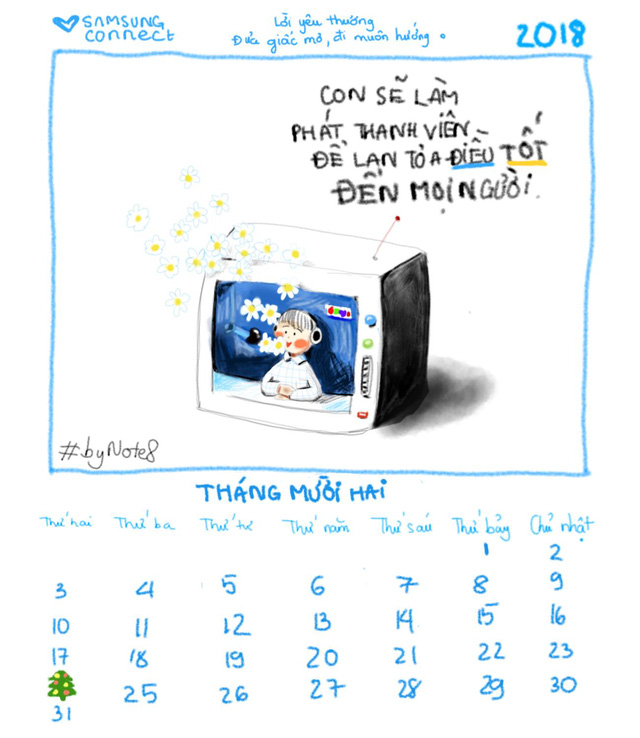 SAMSUNG
connect
Lời yêu thương
Đưa giấc mơ, đi muôn hướng.
2018
CON SẼ LÀM
PHÁT THANH VIÊN
ĐỂ LAN TỎA ĐIỀU TỐT
ĐẾN MỌI NGƯỜI.
#byNote8
THÁNG MƯỜI HAI
Thứ hai Thứ ba Thứ tư Thứ năm Thứ sáu Thứ bảy Chủ nhật
1 2
3 4 5 6 7 8 9
10 11 12 13 14 15 16
17 18 19 20 21 22 23
25 26 27 28 29 30
31